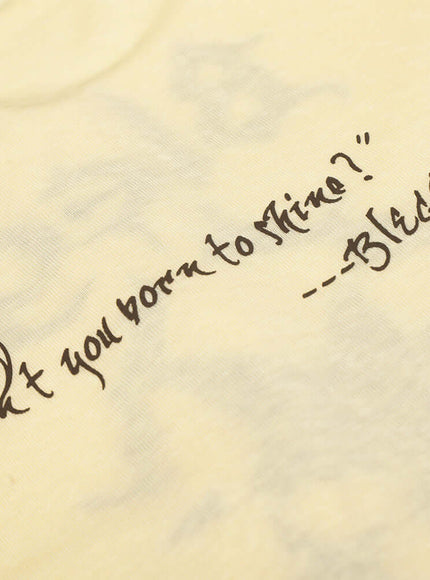 t you born to shine?"
---Ble